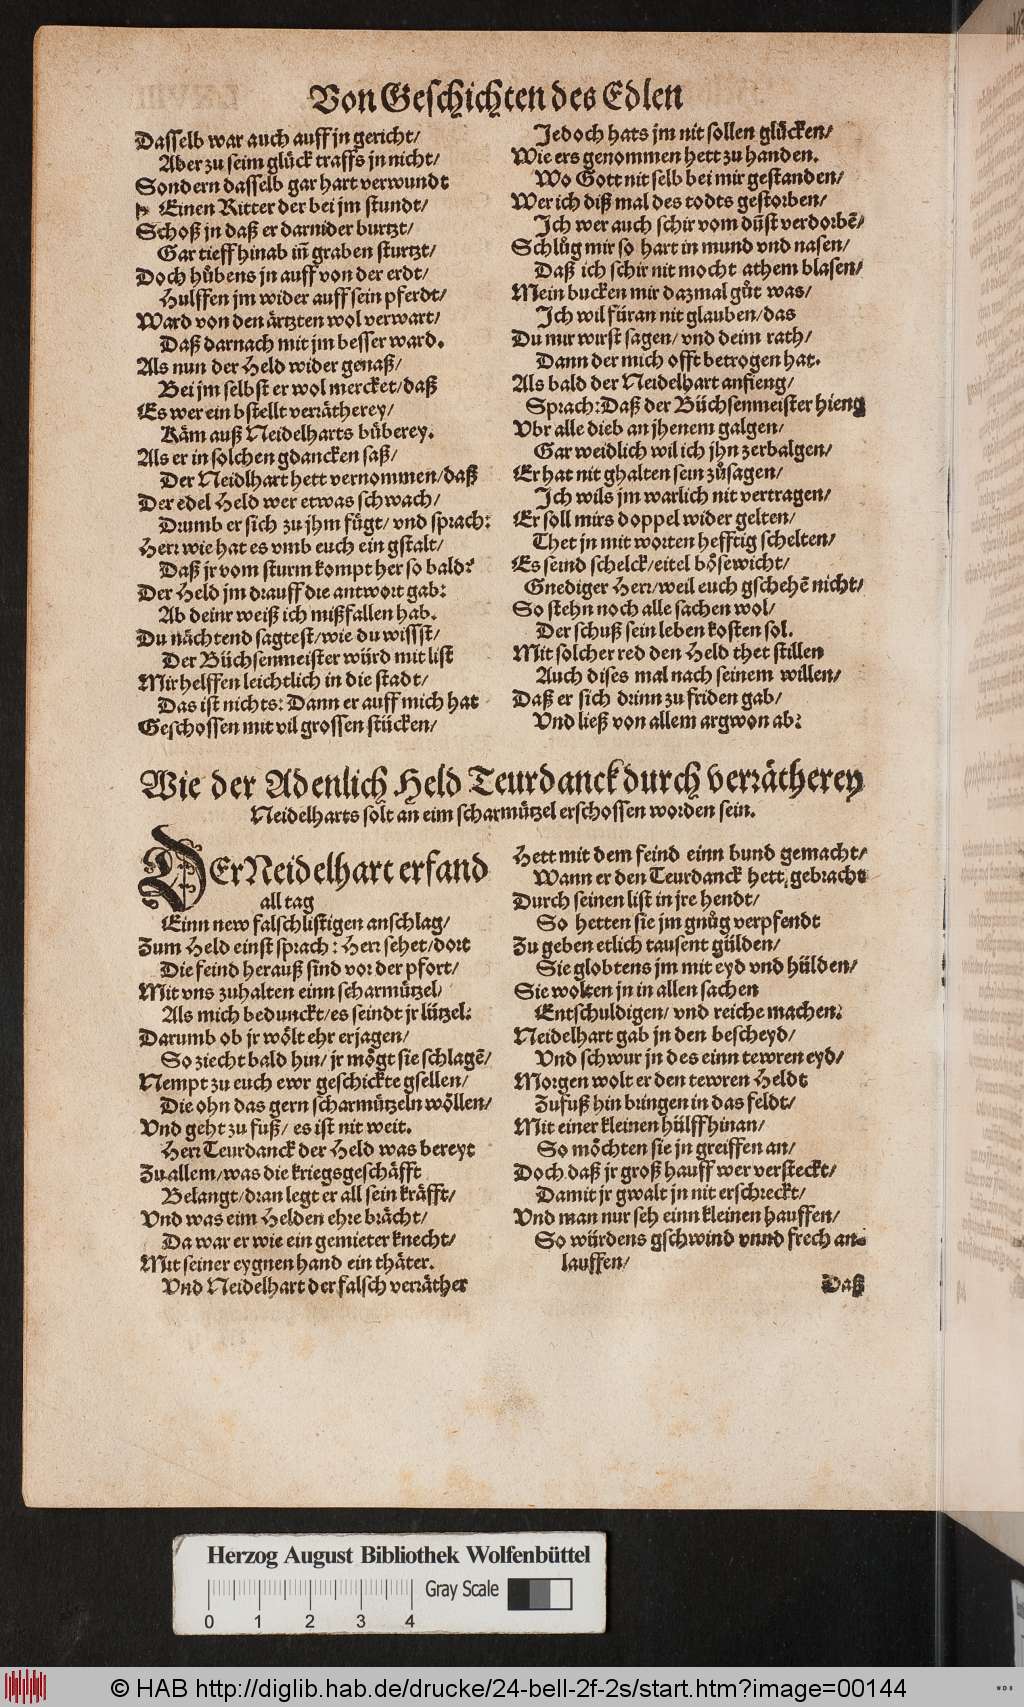 Von Geschichten des Edlen
Dasselb war auch auff jn gericht/
Aber zu seim glück traffs jn nicht/
Sondern dasselb gar hart verwundt
Einen Ritter der bei jm stundt/
Schoß jn daß er darnider burtzt/
Gar tieff hinab iñ graben sturtzt/
Doch hůbens jn auff von der erdt/
Hulffen jm wider auff sein pferdt/
Ward von den ärtzten wol verwart/
Daß darnach mit jm besser ward.
Als nun der Held wider genaß/
Bei jm selbst er wol mercket/ daß
Es wer ein bstellt verrätherey/
Käm auß Neidelharts bůberey.
Als er in solchen gdancken saß/
Der Neidlhart hett vernommen/ daß
Der edel Held wer etwas schwach/
Drumb er sich zu jhm fůgt/ vnd sprach:
Herr wie hat es vmb euch ein gstalt/
Daß jr vom sturm kompt her so bald?
Der Held jm drauff die antwort gab:
Ab deinr weiß ich mißfallen hab.
Du nächtend sagtest/ wie du wissst/
Der Büchsenmeister würd mit list
Mir helffen leichtlich in die stadt/
Das ist nichts: Dann er auff mich hat
Geschossen mit vil grossen stücken/
Jedoch hats jm nit sollen glücken/
Wie ers genommen hett zu handen.
Wo Gott nit selb bei mir gestanden/
Wer ich diß mal des todts gestorben/
Ich wer auch schir vom dũst verdorbẽ/
Schlůg mir so hart in mund vnd nasen/
Daß ich schir nit mocht athem blasen/
Mein bucken mir dazmal gůt was/
Ich wil füran nit glauben/ das
Du mir wirst sagen/ vnd deim rath/
Dann der mich offt betrogen hat.
Als bald der Neidelhart anfieng/
Sprach: Daß der Büchsenmeister hieng
Vbr alle dieb an jhenem galgen/
Gar weidlich wil ich jhn zerbalgen/
Er hat nit ghalten sein zůsagen/
Ich wils jm warlich nit vertragen/
Er soll mirs doppel wider gelten/
Thet jn mit worten hefftig schelten/
Es seind schelck/ eitel bösewicht/
Gnediger Herr/ weil euch gschehẽ nicht/
So stehn noch alle sachen wol/
Der schuß sein leben kosten sol.
Mit solcher red den Held thet stillen
Auch dises mal nach seinem willen/
Daß er sich drinn zu friden gab/
Vnd ließ von allem argwon ab:
Wie der Adenlich Held Teurdanck durch verrätherey
Neidelharts solt an eim scharmützel erschossen worden sein.
DEr Neidelhart erfand
all tag
Einn new falschlistigen anschlag/
Zum Held einst sprach: Herr sehet/ dort
Die feind herauß sind vor der pfort/
Mit vns zuhalten einn scharmützel/
Als mich bedunckt/ es seindt jr lützel:
Darumb ob jr wölt ehr erjagen/
So ziecht bald hin/ jr mögt sie schlagẽ/
Nempt zu euch ewr geschickte gsellen/
Die ohn das gern scharmützeln wöllen/
Vnd geht zu fuß/ es ist nit weit.
Herr Teurdanck der Held was bereyt
Zu allem/ was die kriegsgeschäfft
Belangt/ dran legt er all sein kräfft/
Vnd was eim Helden ehre brächt/
Da war er wie ein gemieter knecht/
Mit seiner eygnen hand ein thäter.
Vnd Neidelhart der falsch verräther
Hett mit dem feind einn bund gemacht/
Wann er den Teurdanck hett gebracht
Durch seinen list in jre hendt/
So hetten sie jm gnůg verpfendt
Zu geben etlich tausent gülden/
Sie globtens jm mit eyd vnd hülden/
Sie wolten jn in allen sachen
Entschuldigen/ vnd reiche machen:
Neidelhart gab jn den bescheyd/
Vnd schwur jn des einn tewren eyd/
Morgen wolt er den tewren Heldt
Zufuß hin bringen in das feldt/
Mit einer kleinen hülff hinan/
So möchten sie jn greiffen an/
Doch daß jr groß hauff wer versteckt/
Damit jr gwalt jn nit erschreckt/
Vnd man nur seh einn kleinen hauffen/
So würdens gschwind vnnd frech an-
lauffen/
Daß
Herzog August Bibliothek Wolfenbüttel
Gray Scale
0 1 2 3 4
© HAB http://diglib.hab.de/drucke/24-bell-2f-2s/start.htm?image=00144